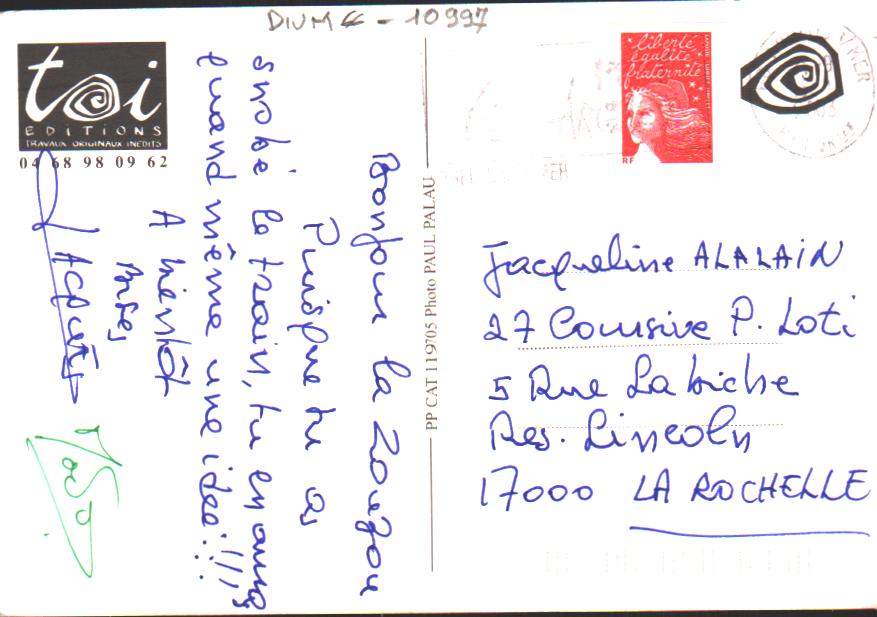 DIVM - 10997
toi
EDITIONS
TRAVAUX ORIGINAUX INEDITS
04 68 98 09 62
Bonjour la
Puisque tu as
snobé le train, tu en auras
quand même une idée!!!
A bientôt
Bises
JACQUES
PP CAT 119705 Photo PAUL PALAU
liberté
égalité
fraternité
RF
Jacqueline ALALAIN
27 Coursive P. Loti
5 Rue Labiche
Res. Lincoln
17000 LA ROCHELLE